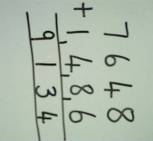 7648
+1486
9134